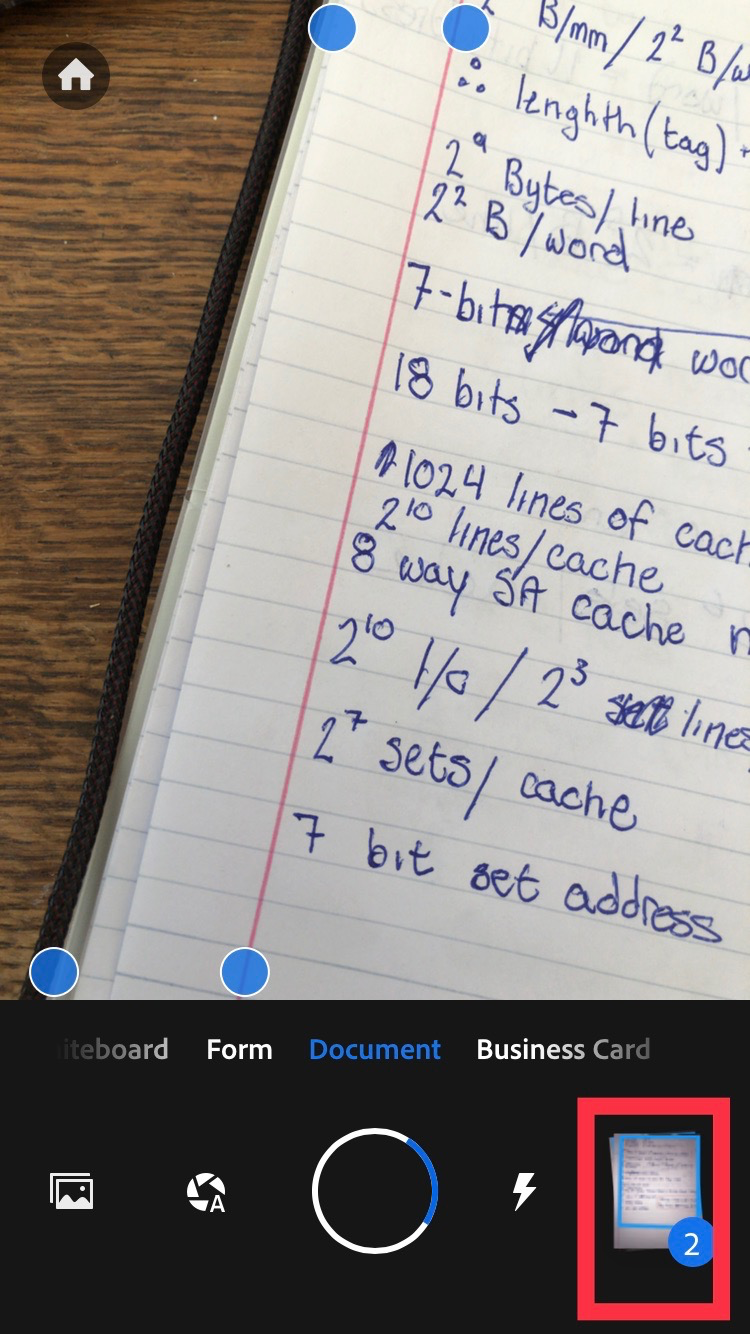 B/mm / 2² B/w
∴ lenghth (tag) +
2⁹ Bytes / line
2² B / word
7-bit
18 bits - 7 bits
1024 lines of cach
2¹⁰ lines/cache
8 way SA cache
2¹⁰ l/c / 2³ lines
2⁷ sets / cache
7 bit set address
iteboard Form Document Business Card
A
2